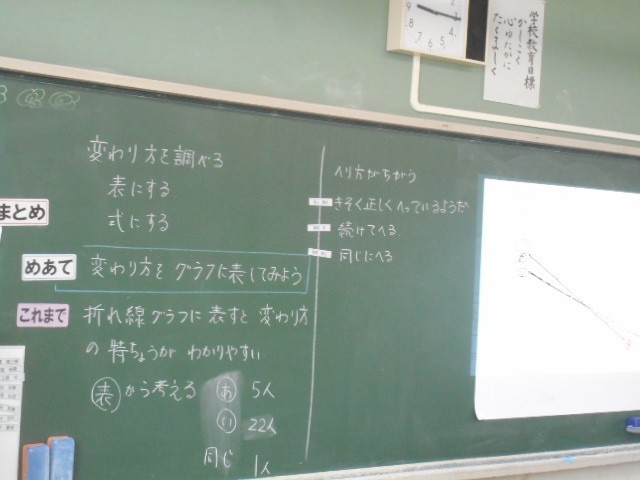 学校教育目標
かしこく
心ゆたかに
たくましく
変わり方を調べる
表にする
式にする
まとめ
めあて
変わり方をグラフに表してみよう
これまで
折れ線グラフに表すと変わり方
の特ちょうがわかりやすい
表から考える
あ 5人
い 22人
同じ 1人
へり方がちがう
きそく正しくへっているようだ
続けてへる
同じにへる